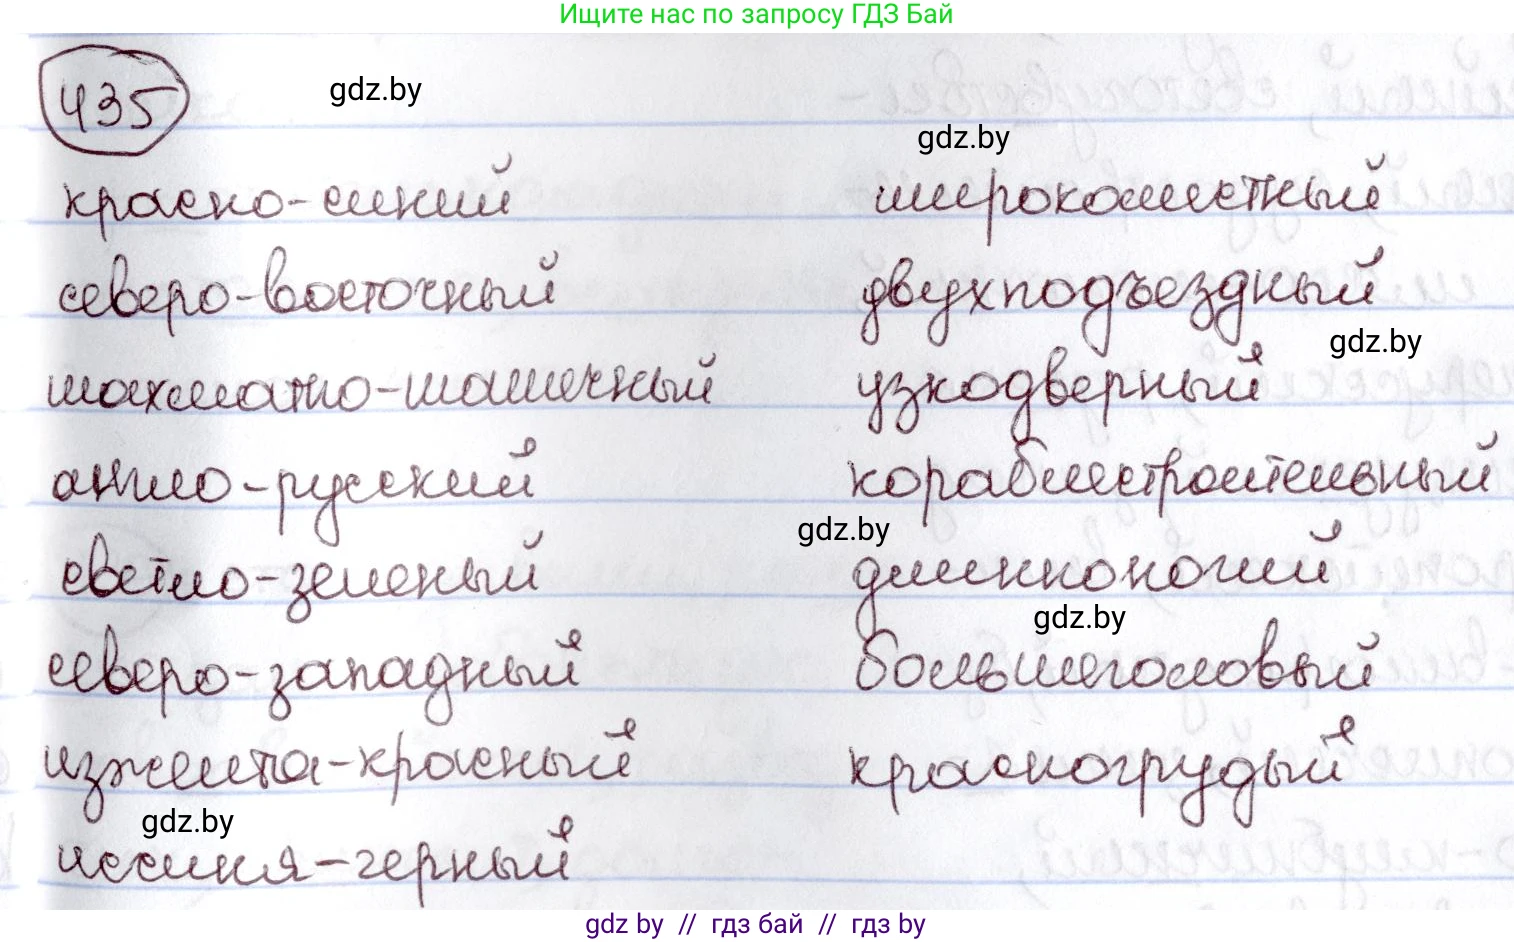 Ищите нас по запросу ГДЗ Бай
435
gdz.by
gdz.by
красно-синий
широкоместный
северо-восточный
двухподъездный
gdz.by
шахматно-шашечный
узкодверный
англо-русский
кораблестроительный
gdz.by
светло-зеленый
длинноногий
gdz.by
северо-западный
большеголовый
изжелта-красный
красногрудый
gdz.by
иссиня-черный
gdz by // гдз бай // гдз by